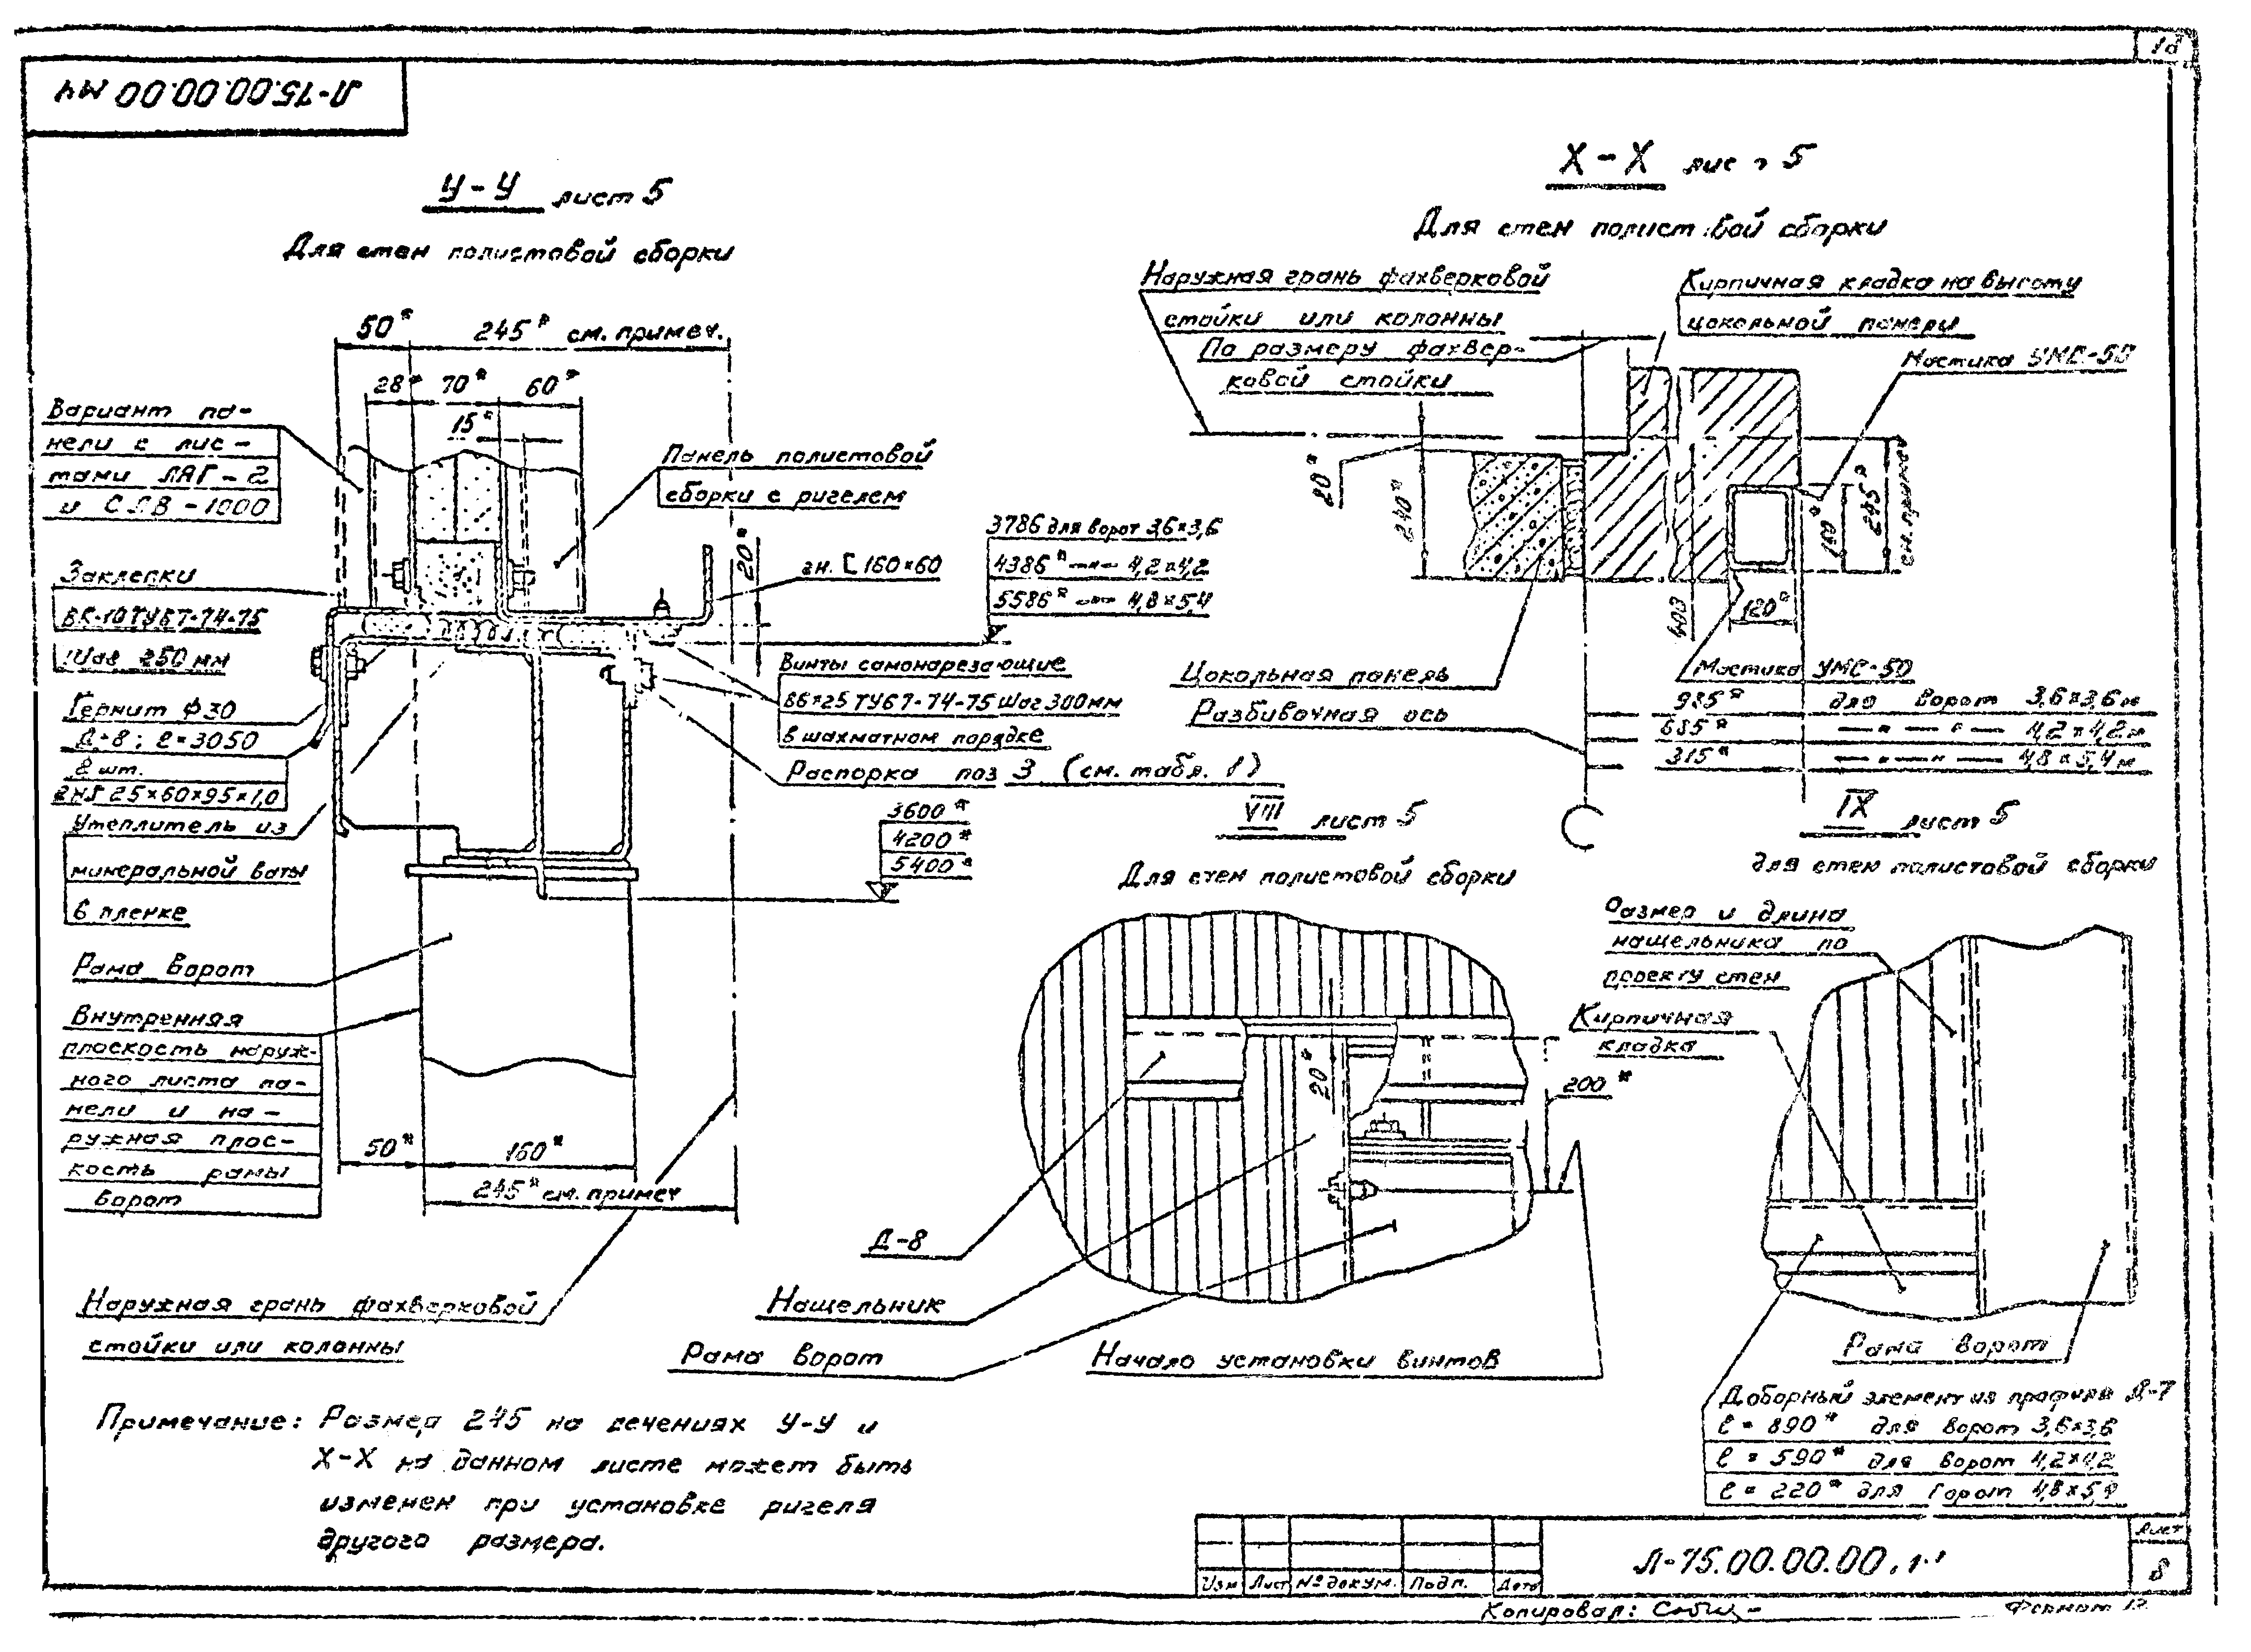 18
Л-75.00.00.00 МЧ
У-У лист 5
Для стен полистовой сборки
50* 245* см. примеч.
28* 70* 60*
15*
Вариант па-
нели с лис-
тами ЛЯГ-2
и СЛВ-1000
Панель полистовой
сборки с ригелем
20*
гн. [ 160×60
3786 для ворот 3,6×3,6
4386* —"— 4,2×4,2
5586* —"— 4,8×5,4
Заклепки
ВК-10 ТУ67-74-75
Шаг 250 мм
Гернит ф30
Д-8; ℓ=3050
2 шт.
гн.Г 25×60×95×1,0
Утеплитель из
минеральной ваты
в пленке
Винты самонарезающие
В6×25 ТУ67-74-75 Шаг 300мм
в шахматном порядке
Распорка поз 3 (см. табл. 1)
3600*
4200*
5400*
Рама ворот
Внутренняя
плоскость наруж-
ного листа па-
нели и на-
ружная плос-
кость рамы
ворот
50* 160*
245* см. примеч
Наружная грань фахверковой
стойки или колонны
Примечание: Размер 245 на сечениях У-У и
Х-Х на данном листе может быть
изменен при установке ригеля
другого размера.
Х-Х лист 5
Для стен полистовой сборки
Наружная грань фахверковой
стойки или колонны
По размеру фахвер-
ковой стойки
Кирпичная кладка на высоту
цокольной панели
Мастика УМС-50
20*
240*
160*
245*
см. примеч.
403
120*
Мастика УМС-50
Цокольная панель
Разбивочная ось
985* для ворот 3,6×3,6м
685* —"— 4,2×4,2м
315* —"— 4,8×5,4м
VIII лист 5
Для стен полистовой сборки
20*
200*
Д-8
Нащельник
Рама ворот
Начало установки винтов
IX лист 5
для стен полистовой сборки
Размер и длина
нащельника по
проекту стен
Кирпичная
кладка
Рама ворот
Доборный элемент из профиля Д-7
ℓ = 890* для ворот 3,6×3,6
ℓ = 590* для ворот 4,2×4,2
ℓ = 220* для ворот 4,8×5,4
Изм Лист № докум. Подп. Дата
Л-75.00.00.00
Лист
8
Копировал:
Формат 12